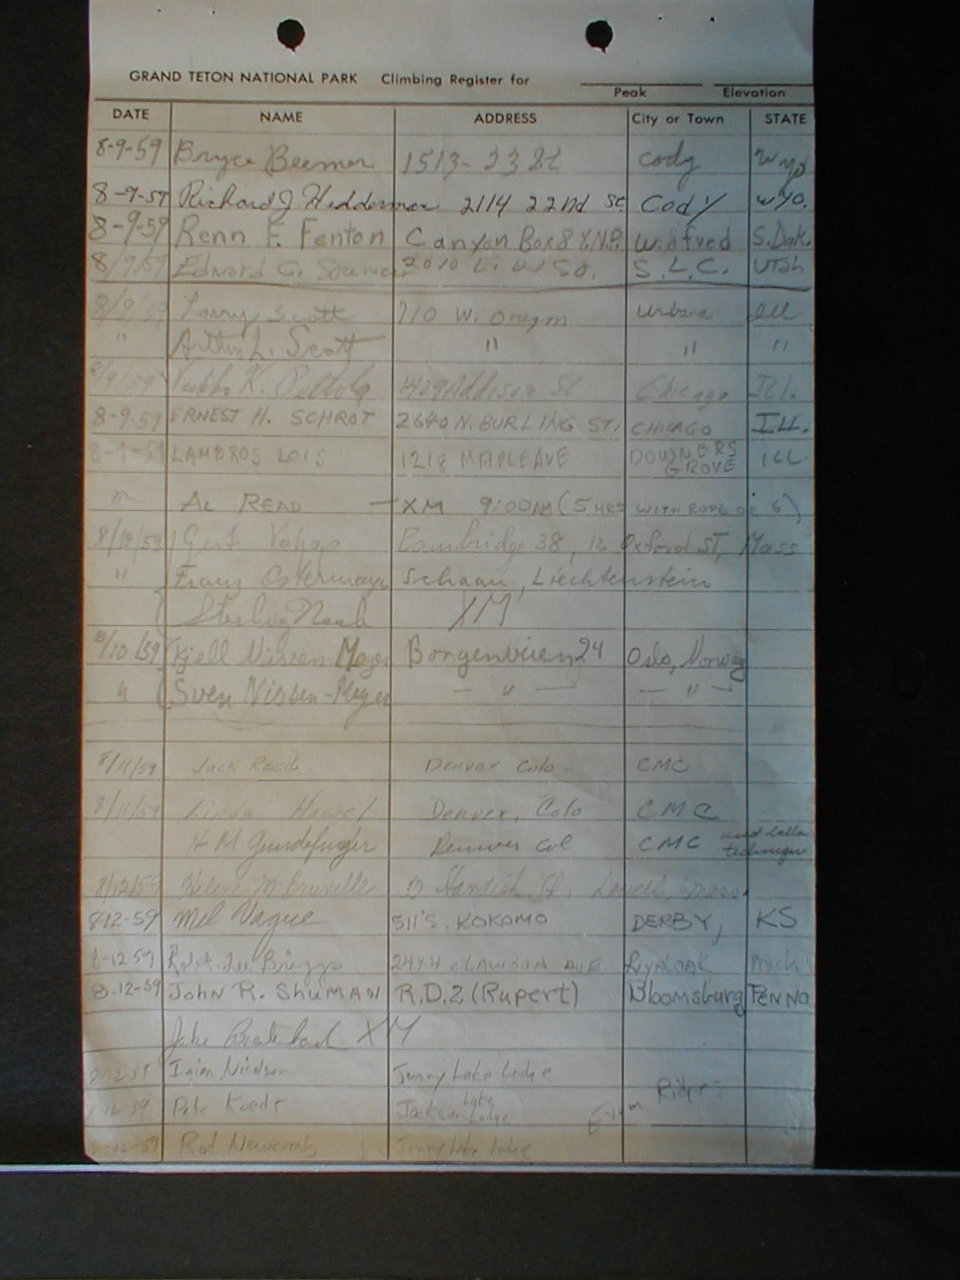 GRAND TETON NATIONAL PARK Climbing Register for
Peak Elevation
DATE NAME ADDRESS City or Town STATE
8-9-59 Bryce Beemer 1513-23 St Cody Wyo
8-9-59 Richard J Hedderman 2114 22nd St Cody Wyo.
8-9-59 Renn F. Fenton Canyon Box 8 Y.N.P. Winfred S. Dak.
8/9/59 Edward C. 2010 E. So. S.L.C. Utah
8/9/59 Larry Scott 710 W. Oregon Urbana Ill
" Arthur L. Scott " " "
8/9/59 K. 1429 Addison St Chicago Ill.
8-9-59 ERNEST H. SCHROT 2640 N. BURLING ST. CHICAGO ILL.
8-9-59 LAMBROS LOIS 1218 MAPLE AVE DOWNERS GROVE ILL
AL READ — XM 9:00 (5 HRS WITH ROPE OF 6)
8/10/59 Gert Cambridge 38, 12 Oxford ST, Mass
" Franz Ostermayr Schaan, Liechtenstein
Sterling Neale XM
8/10/59 Kjell Nissen-Meyer Borgenveien 24 Oslo, Norway
" Sven Nissen-Meyer — " — — " —
8/11/59 Jack Reed Denver Colo CMC
8/11/59 Linda Denver, Colo CMC
H M Denver Col CMC used technique
8/12/59 M. Standish St. Lowell, Mass.
8-12-59 Mel Vague 511 S. KOKOMO DERBY, KS
8-12-59 Robt. Lee Briggs 2444 CLAWSON AVE Royal OAK Mich
8-12-59 JOHN R. SHUMAN R.D.2 (Rupert) Bloomsburg PENNA
Jake Breitenbach XM
8-12-59 Jenny Lake Lodge
8-12-59 Pete Jackson Lake Lodge Exum Ridge
8-12-59 Rod Newcomb Jenny Lake Lodge